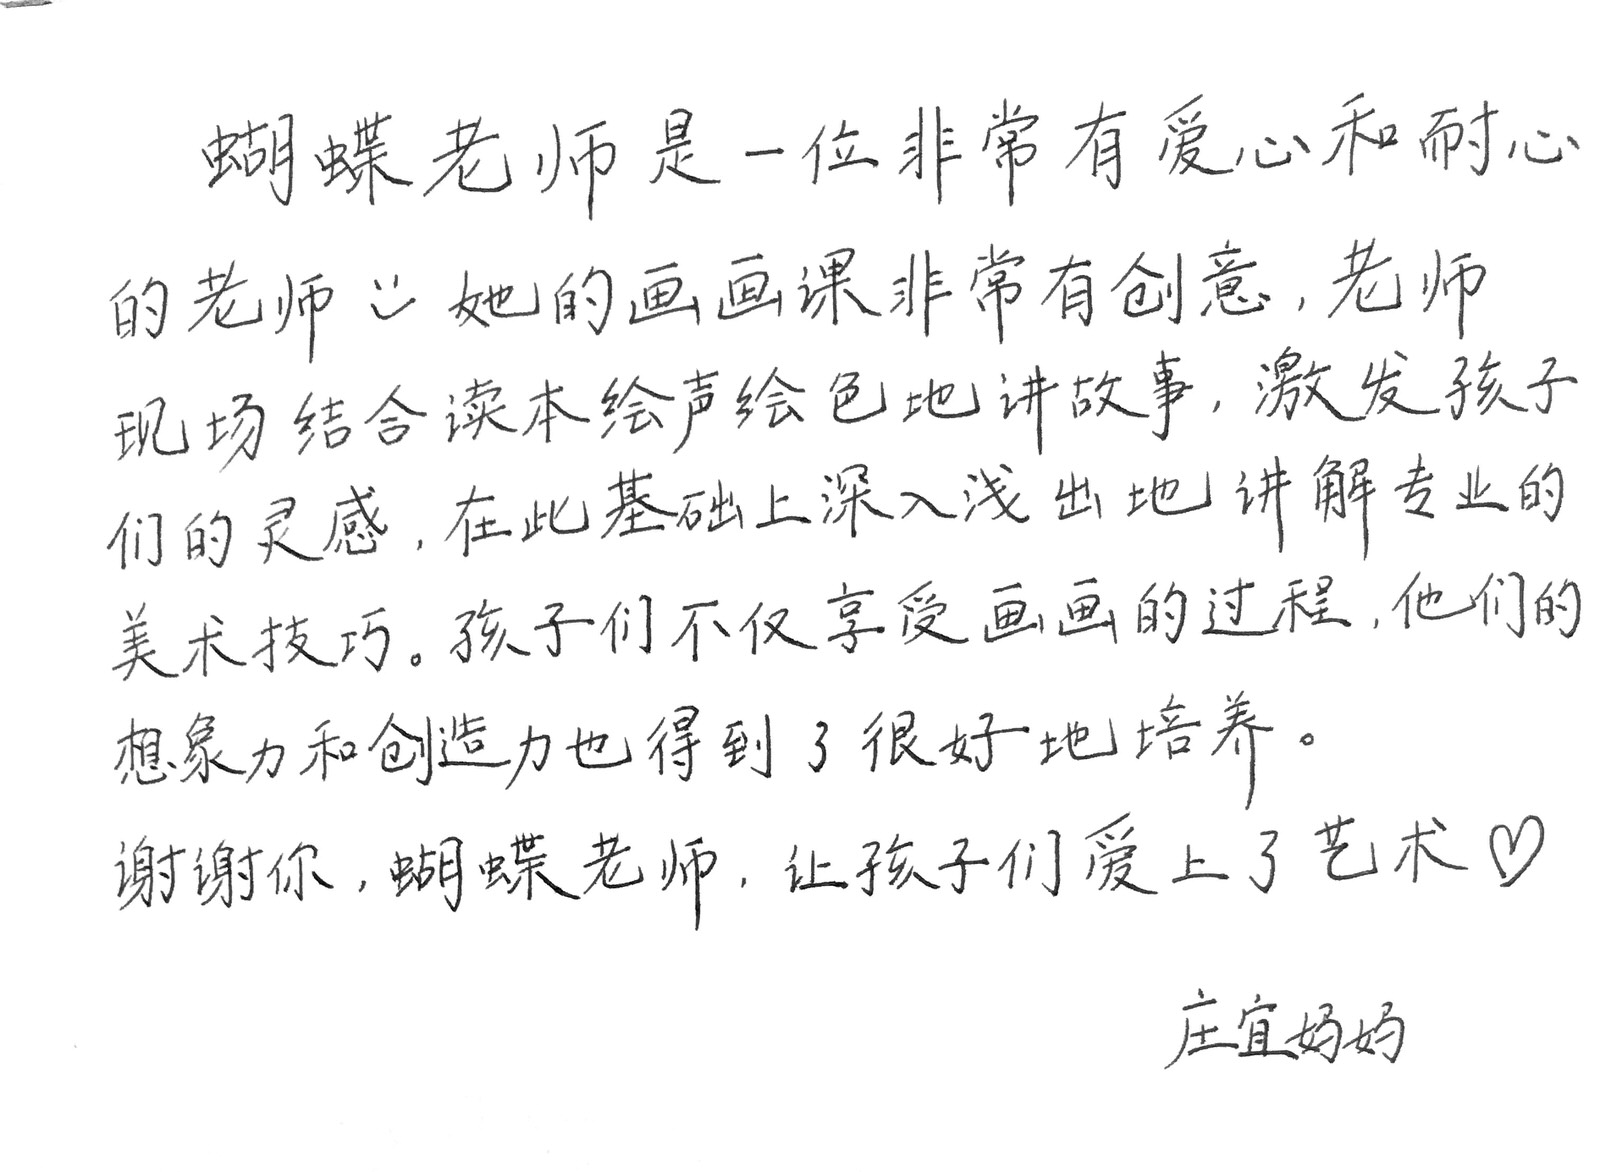 蝴蝶老师是一位非常有爱心和耐心
的老师 她的画画课非常有创意，老师
现场结合读本绘声绘色地讲故事，激发孩子
们的灵感，在此基础上深入浅出地讲解专业的
美术技巧。孩子们不仅享受画画的过程，他们的
想象力和创造力也得到了很好地培养。
谢谢你，蝴蝶老师，让孩子们爱上了艺术♡
庄宜妈妈